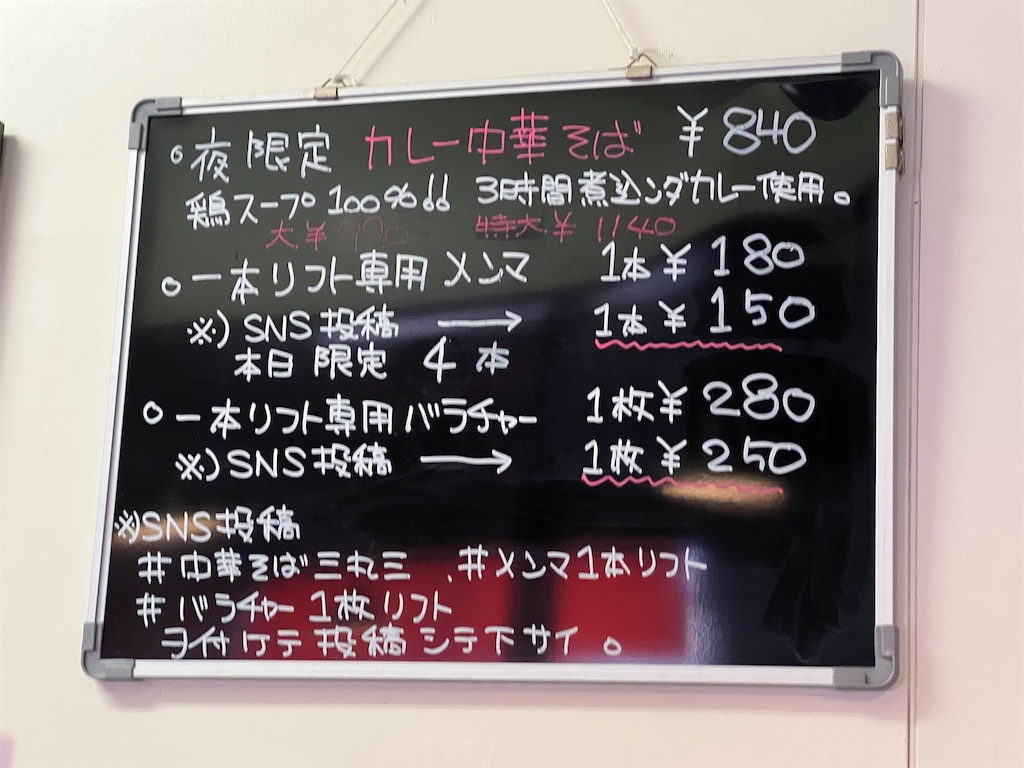 。夜限定 カレー中華そば ¥840
鶏スープ100%!! 3時間煮込ンダカレー使用。
大¥990 特大¥1140
。一本リフト専用メンマ 1本¥180
※)SNS投稿 → 1本¥150
本日限定 4本
。一本リフト専用バラチャー 1枚¥280
※)SNS投稿 → 1枚¥250
※)SNS投稿
#中華そば三丸三 . #メンマ1本リフト
#バラチャー1枚リフト
ヲ付ケテ投稿シテ下サイ。